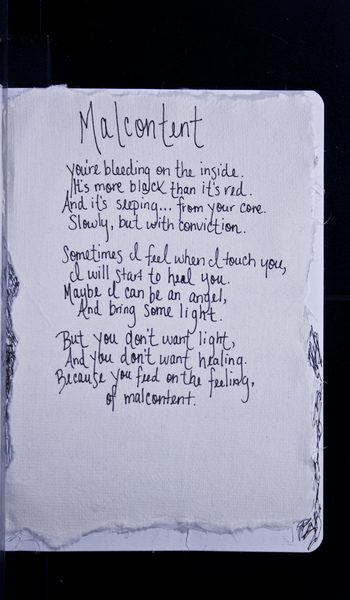 Malcontent
you're bleeding on the inside.
It's more black than it's red.
And it's seeping... from your core.
Slowly, but with conviction.
Sometimes I feel when I touch you,
I will start to heal you.
Maybe I can be an angel,
And bring some light.
But you don't want light,
And you don't want healing.
Because you feed on the feeling,
of malcontent.